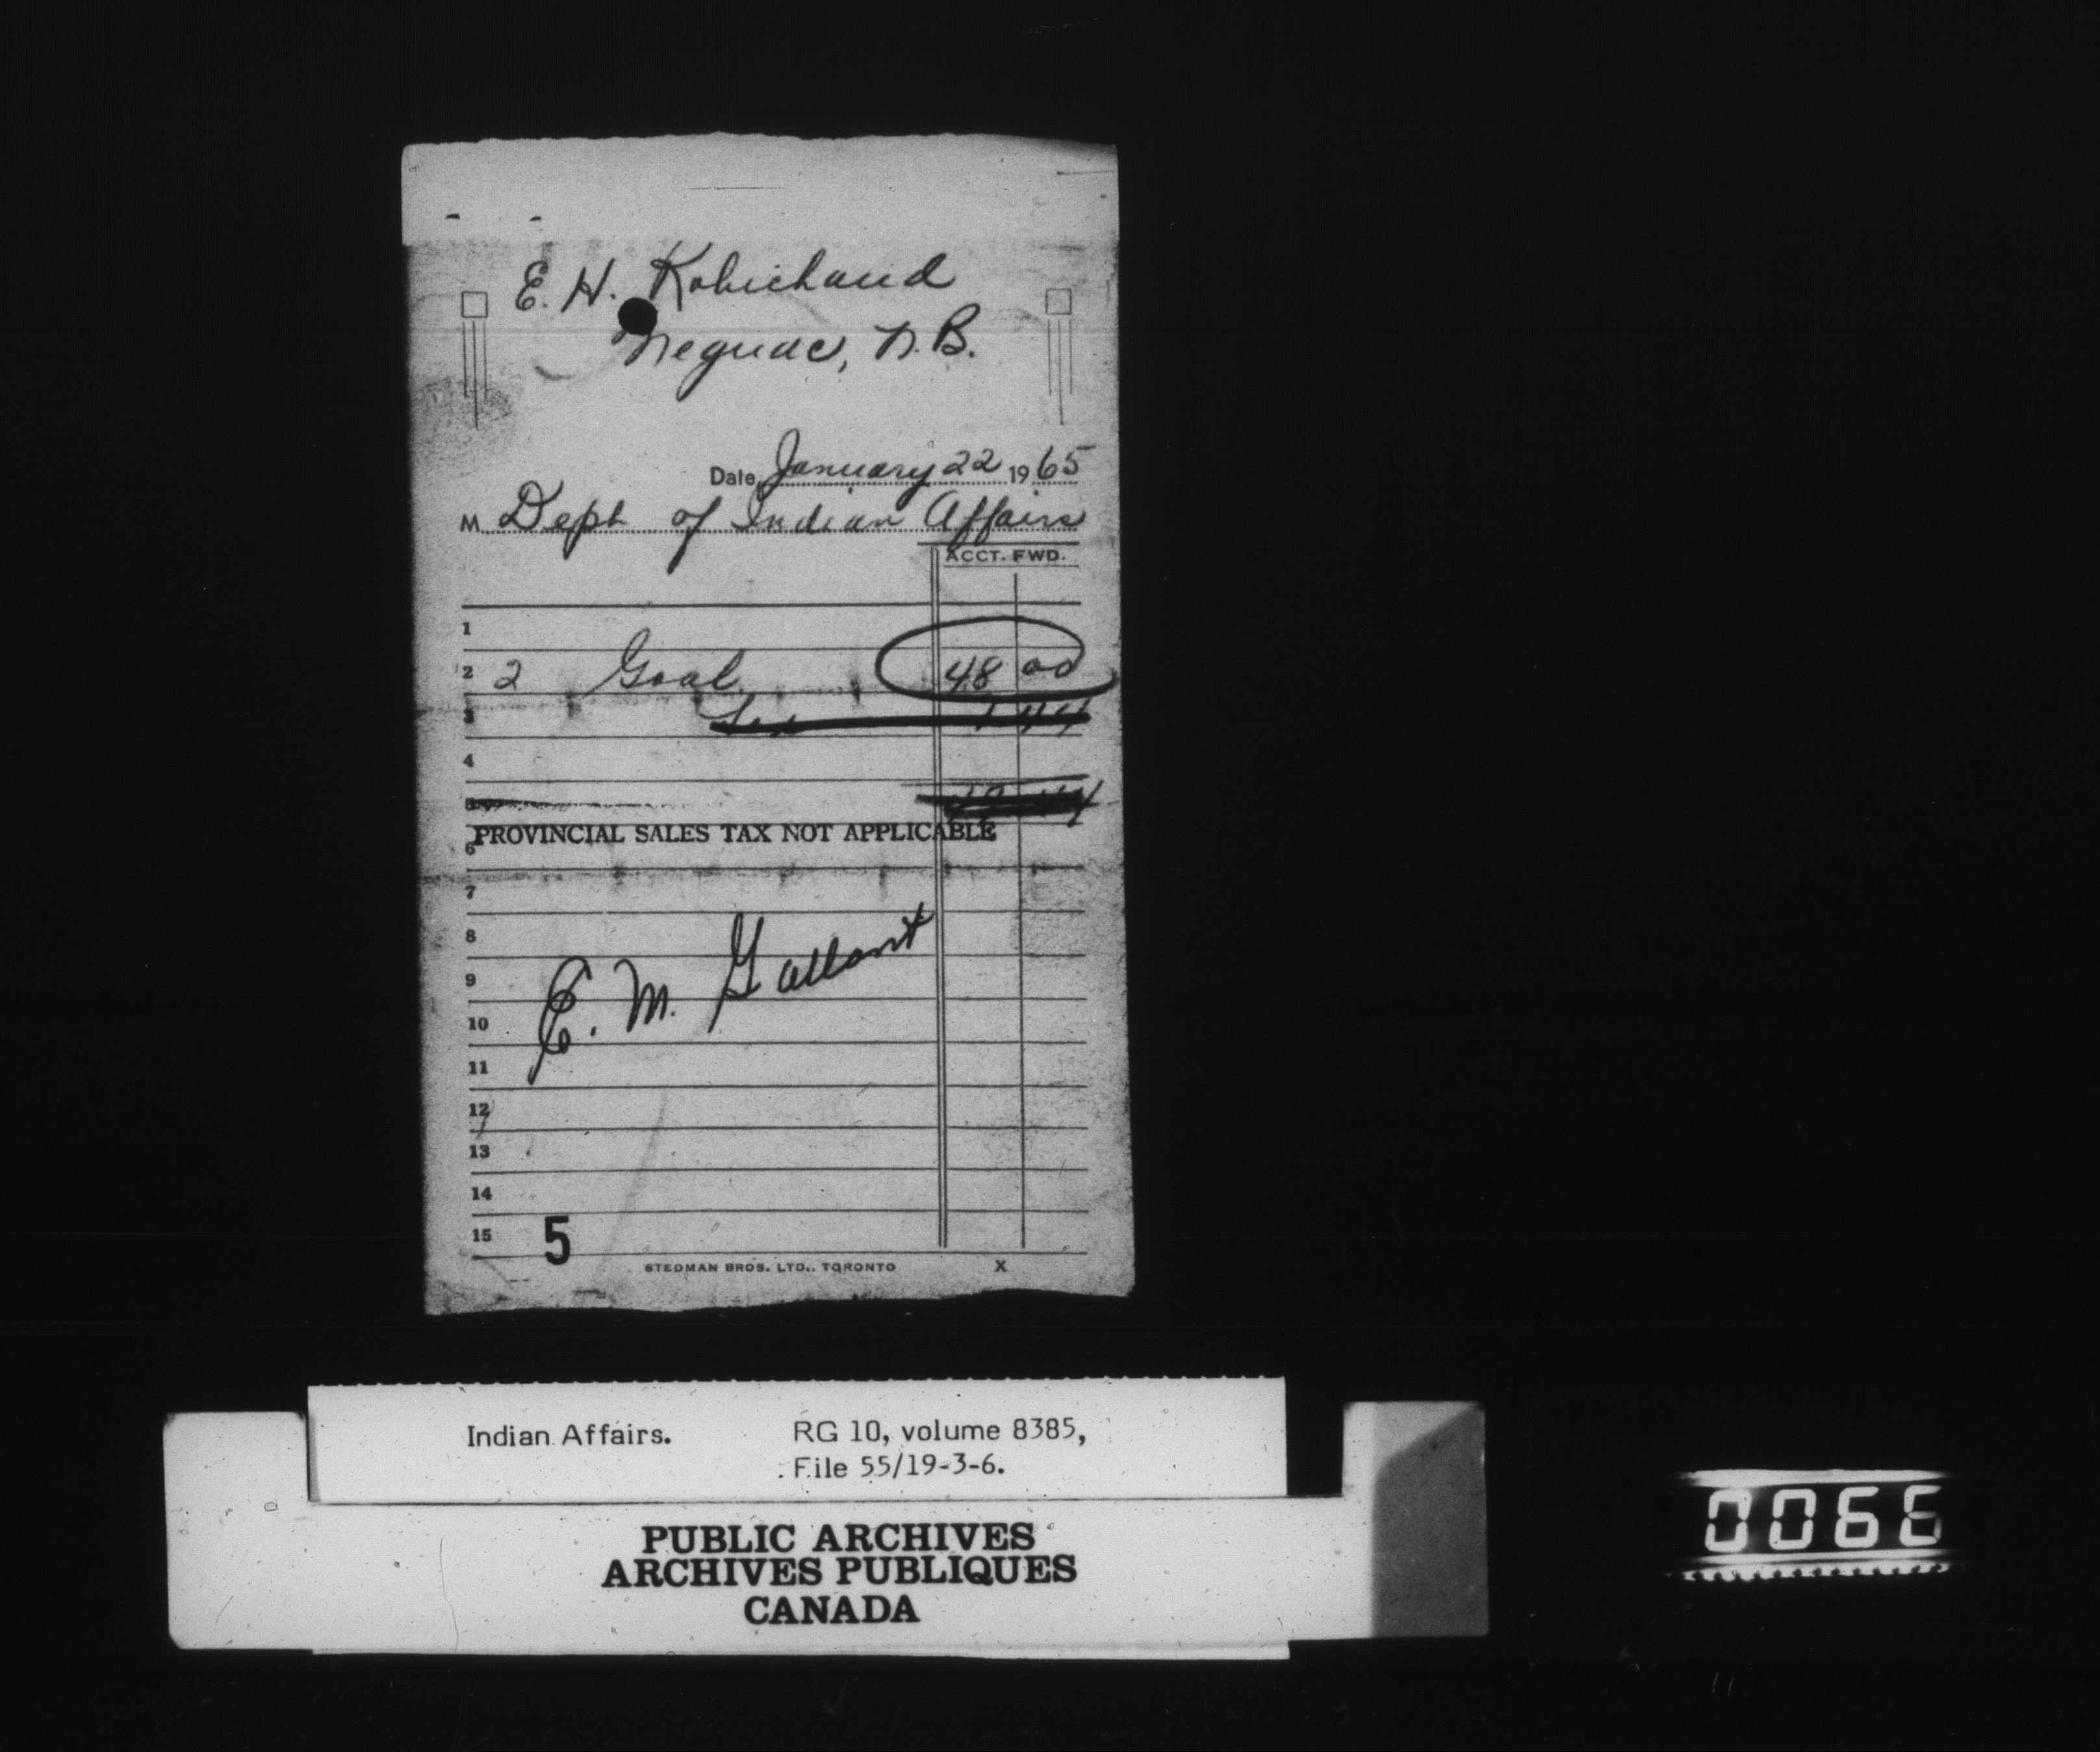 E. H. Robichaud
Neguac, N.B.
Date January 22 1965
M Dept of Indian Affairs
ACCT. FWD.
1
2 2 Goal 48 00
3 Tax 1 44
4
5 49 44
PROVINCIAL SALES TAX NOT APPLICABLE
6
7
8
9
E. M. Gallant
10
11
12
13
14
15 5
STEDMAN BROS. LTD., TORONTO X
Indian Affairs. RG 10, volume 8385,
File 55/19-3-6.
PUBLIC ARCHIVES
ARCHIVES PUBLIQUES
CANADA